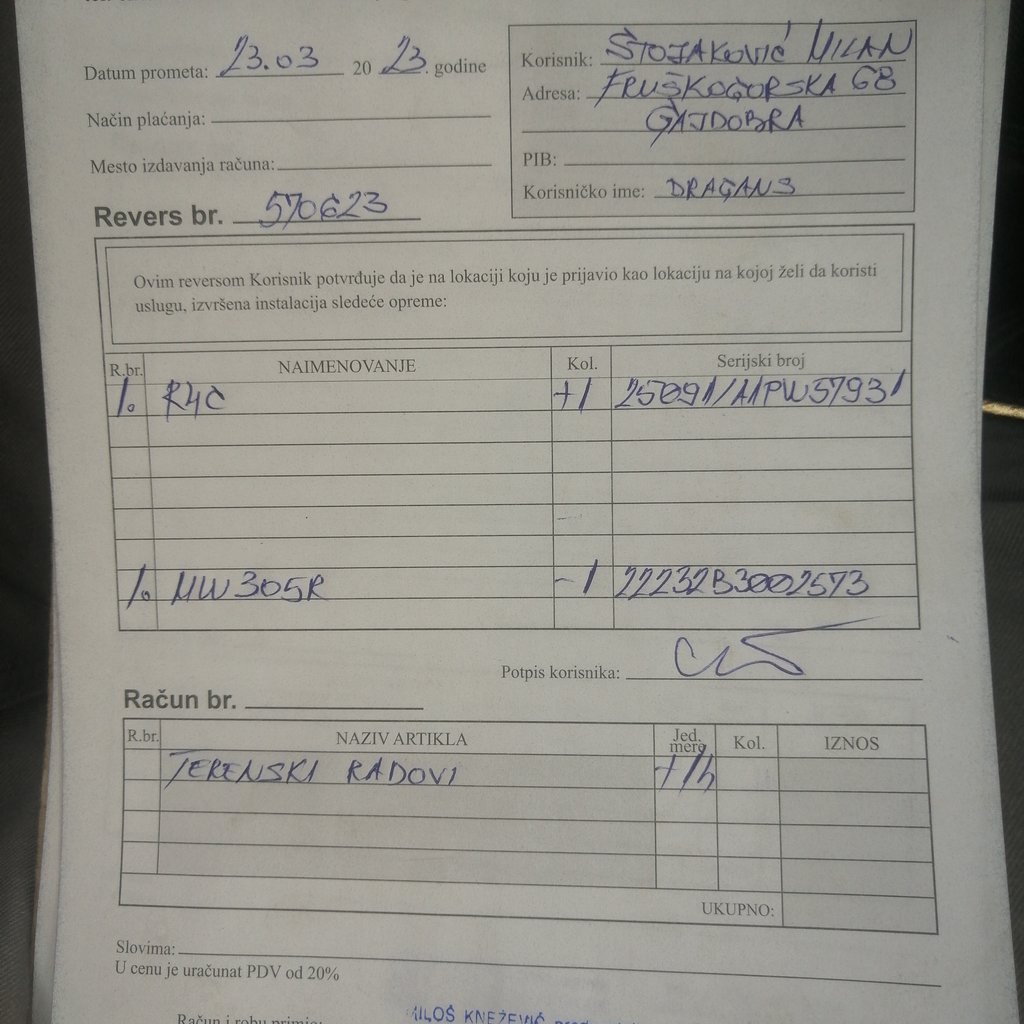 Datum prometa: 23.03 2023. godine
Način plaćanja:
Mesto izdavanja računa:
Revers br. 570623
Korisnik: STOJAKOVIĆ MILAN
Adresa: FRUŠKOGORSKA 68
GAJDOBRA
PIB:
Korisničko ime: DRAGANS
Ovim reversom Korisnik potvrđuje da je na lokaciji koju je prijavio kao lokaciju na kojoj želi da koristi
uslugu, izvršena instalacija sledeće opreme:
R.br. NAIMENOVANJE Kol. Serijski broj
1. R4C +1 25091/A1PW57931
1. MW305R -1 22232B3002573
Potpis korisnika:
Račun br.
R.br. NAZIV ARTIKLA Jed. mere Kol. IZNOS
TERENSKI RADOVI +1h
UKUPNO:
Slovima:
U cenu je uračunat PDV od 20%
Račun i robu primio:
MILOŠ KNEŽEVIĆ